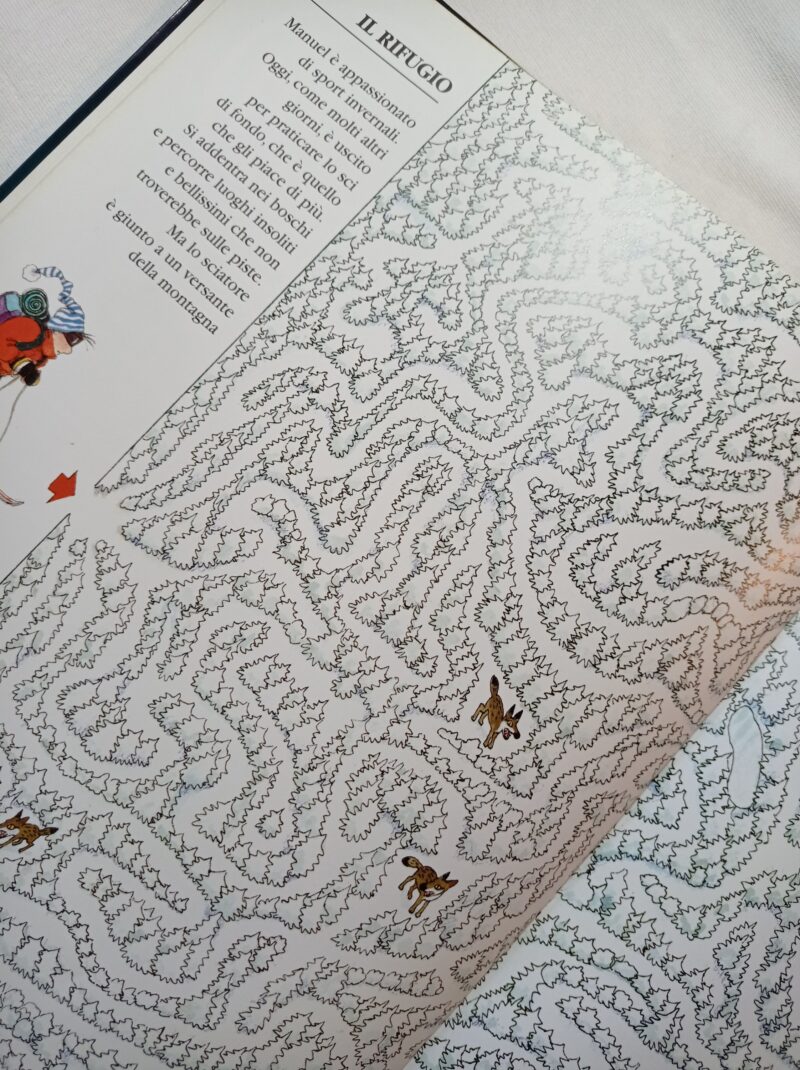 IL RIFUGIO
Manuel è appassionato
di sport invernali
Oggi, come molti altri
giorni, è uscito
per praticare lo sci
di fondo, che è quello
che gli piace di più.
Si addentra nei boschi
e percorre luoghi insoliti
e bellissimi che non
troverebbe sulle piste.
Ma lo sciatore
è giunto a un versante
della montagna